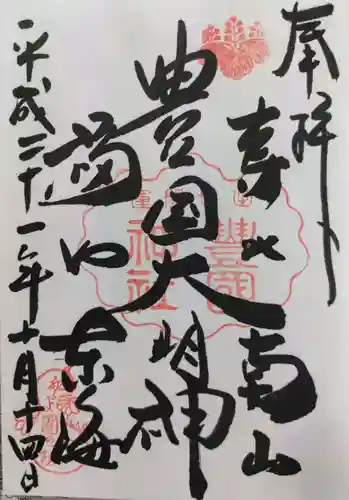 奉拝
寿比南山
豊国大明神
福如東海
平成二十一年十月十四日
豐國
神社